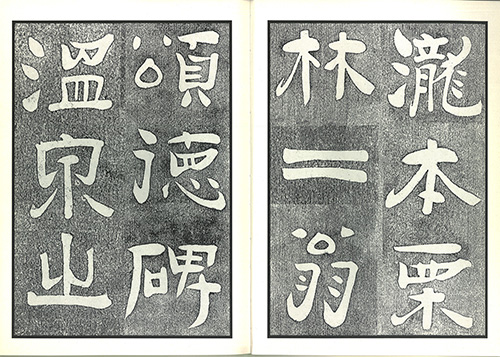 瀧本栗
林二翁
頌徳碑
溫泉之